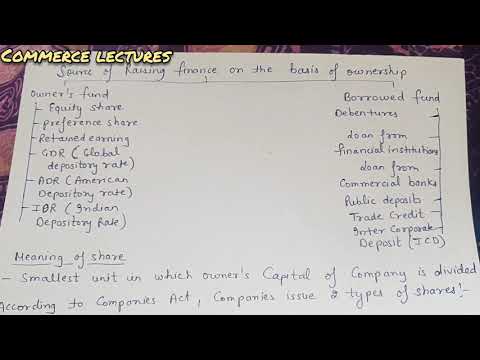 COMMERCE LECTURES
Source of Raising finance on the basis of ownership
Owner's fund
Equity share
preference share
Retained earning
GDR (Global
depository rate)
ADR (American
Depository rate)
IDR (Indian
Depository Rate)
Borrowed fund
Debentures
loan from
financial institutions
loan from
Commercial banks
Public deposits
Trade Credit
Inter Corporate
Deposit (ICD)
Meaning of share
- Smallest unit in which owner's Capital of Company is divided
According to Companies Act, Companies issue 2 types of shares:-